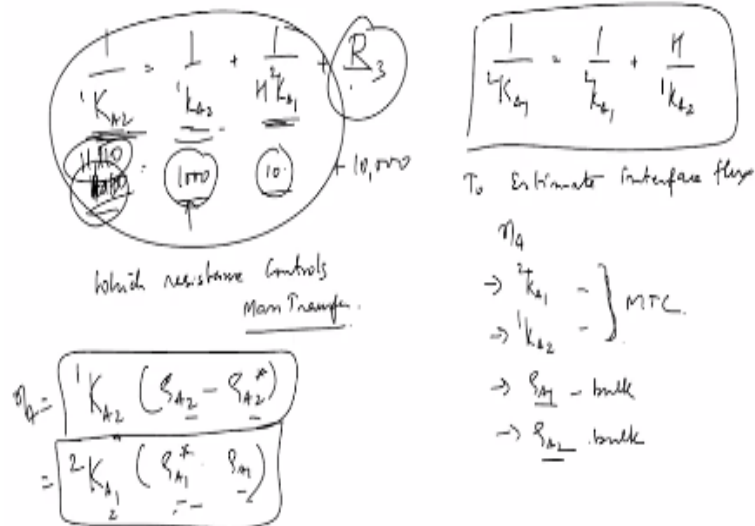 1/¹K_A2 = 1/¹k_A2 + 1/H²k_A1 + R_3
1000 10 + 10,000
Which resistance Controls
Mass Transfer.
n_A = ¹K_A2 (ρ_A2 - ρ_A2*)
= ²K_A1 (ρ_A1* - ρ_A1)
2
1/²K_A1 = 1/²k_A1 + H/¹k_A2
To Estimate interface flux
n_A
→ ²k_A1 - } MTC.
→ ¹k_A2 -
→ ρ_A1 - bulk
→ ρ_A2 bulk